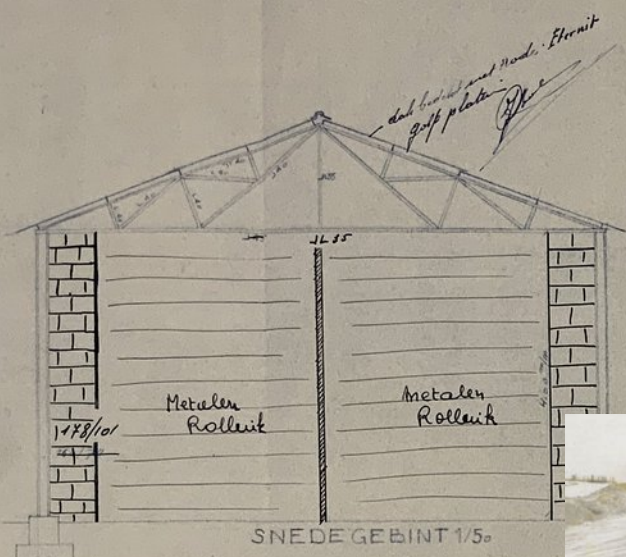 dak bedekt met rode Eternit
golf platen
JL 35
Metalen
Rolluik
Metalen
Rolluik
178/101
SNEDE GEBINT 1/50